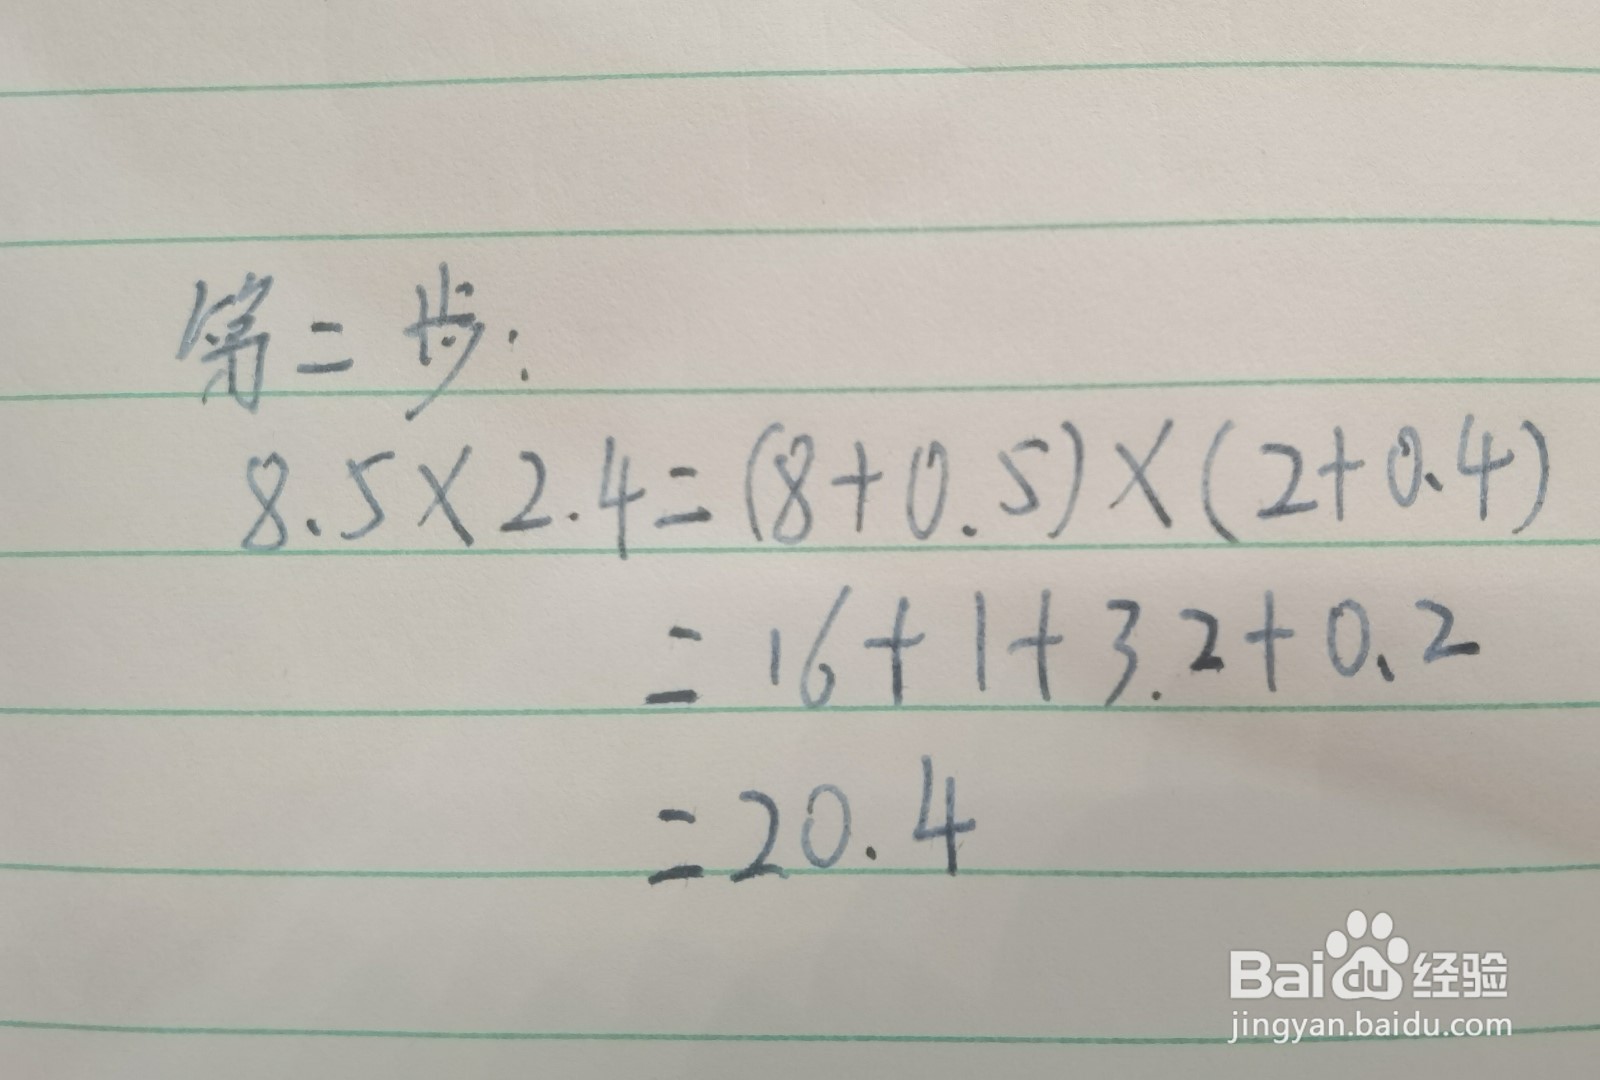 第二步:
8.5×2.4=(8+0.5)×(2+0.4)
=16+1+3.2+0.2
=20.4
Baidu经验
jingyan.baidu.com